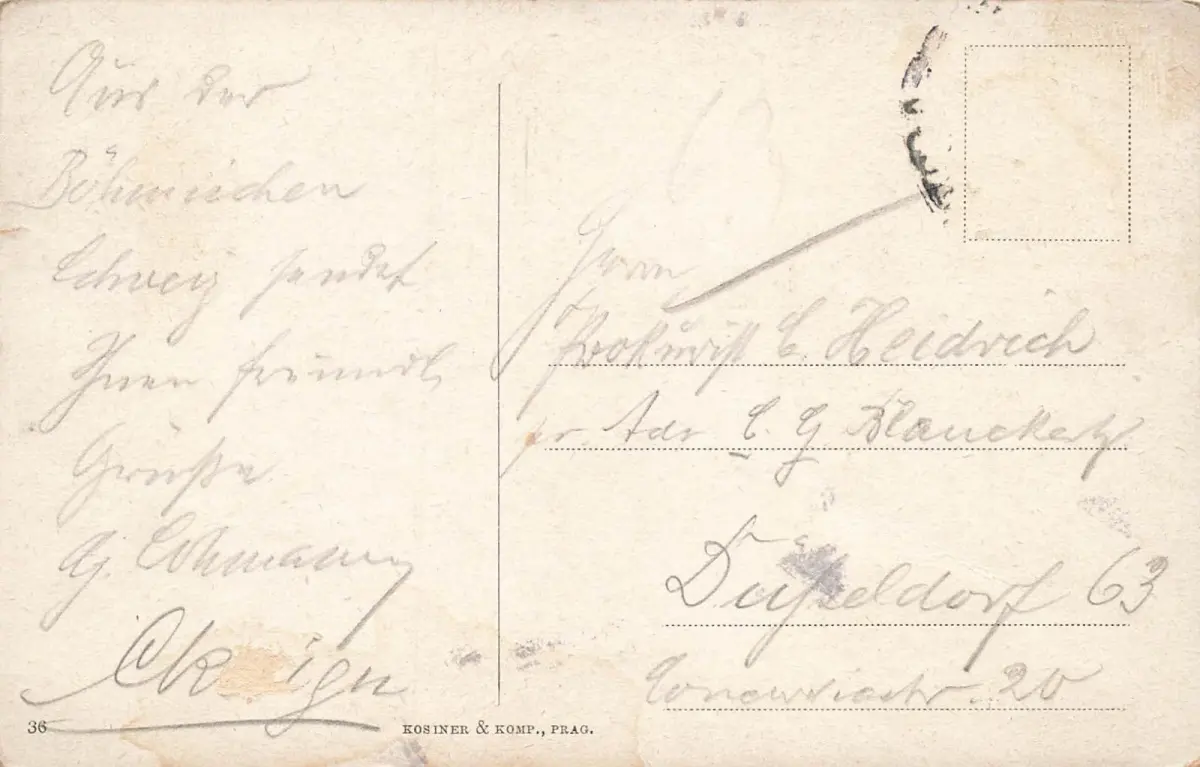 Aus der
Böhmischen
Schweiz sendet
Ihnen freundl.
Grüße
36
KOSINER & KOMP., PRAG.
Herrn
Prokurist C. Heidrich
pr. Adr. C. G. Blanckertz
Düsseldorf 63
20